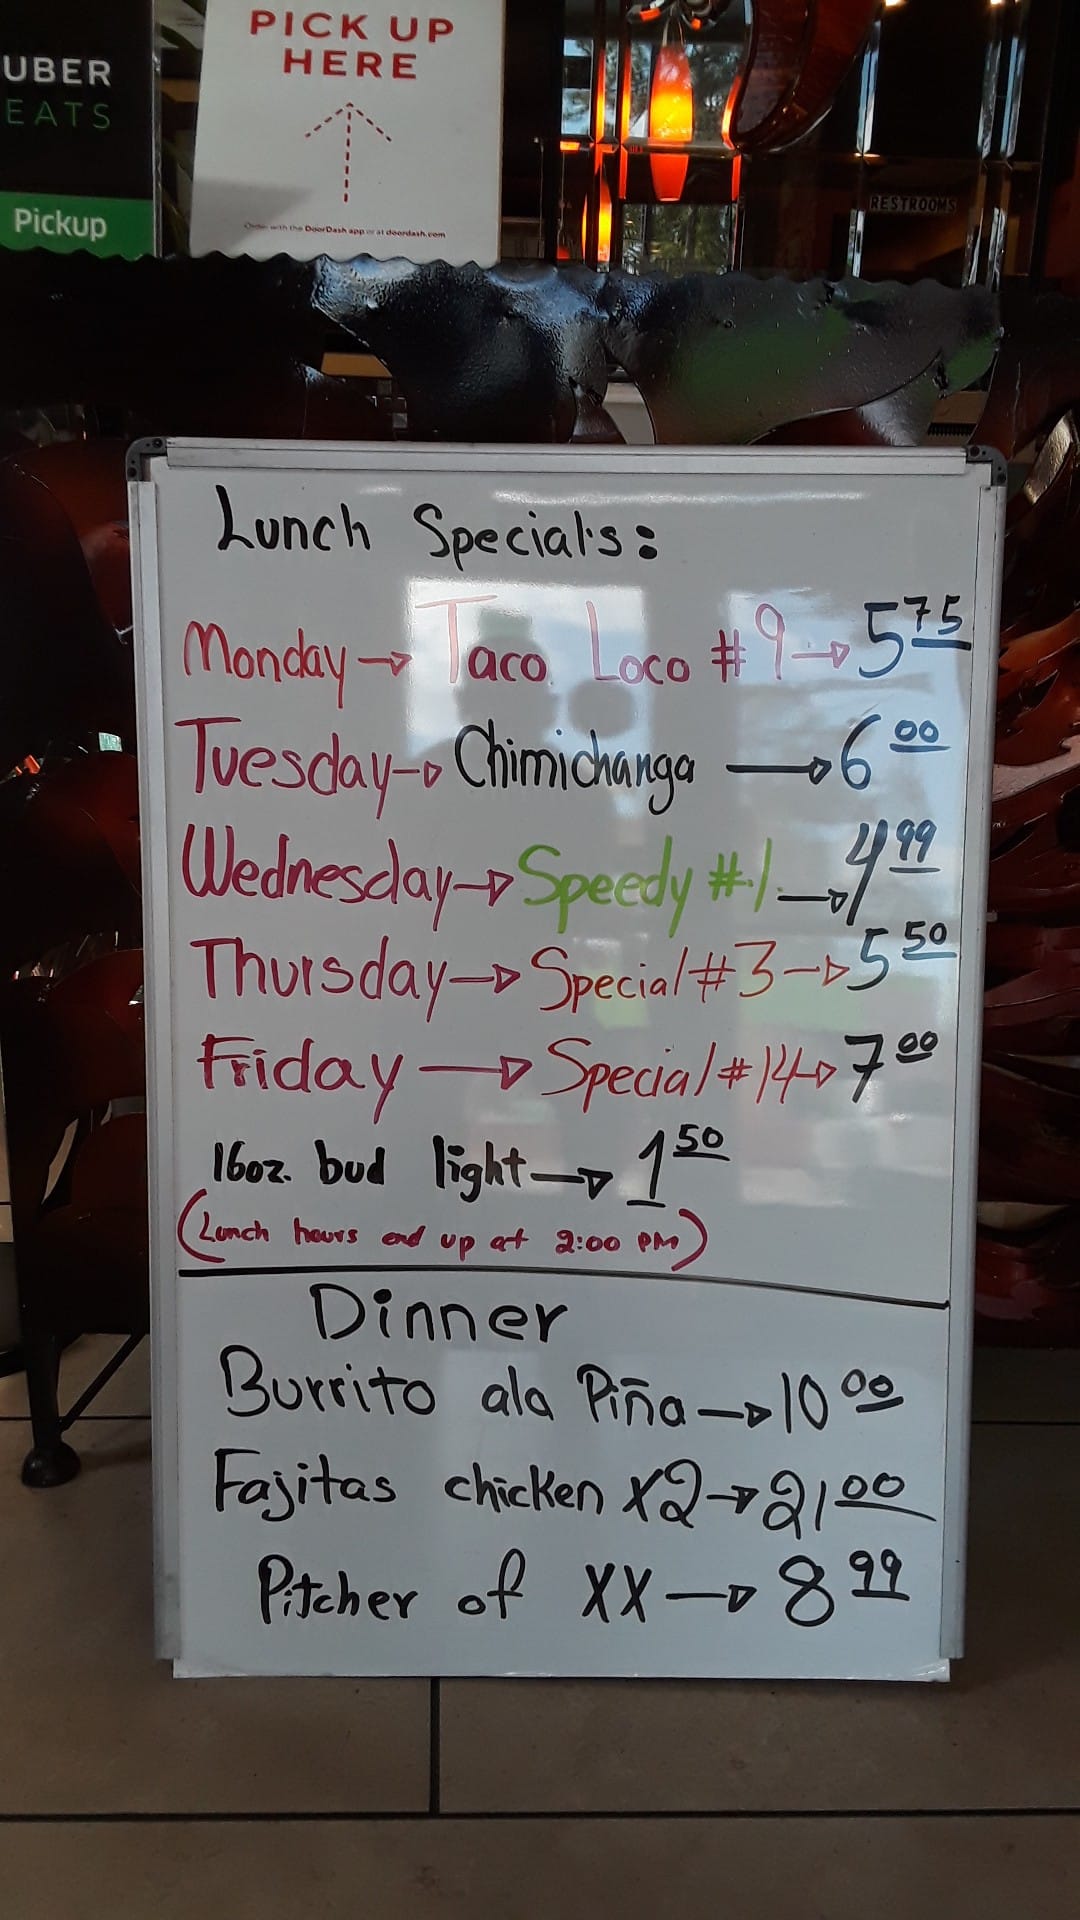 UBER
EATS
Pickup
PICK UP
HERE
Order with the DoorDash app or at doordash.com
RESTROOMS
Lunch Special's:
Monday → Taco Loco #9 → 5 75
Tuesday → Chimichanga → 6 00
Wednesday → Speedy #1 → 4 99
Thursday → Special #3 → 5 50
Friday → Special #14 → 7 00
16oz. bud light → 1 50
(Lunch hours end up at 2:00 PM)
Dinner
Burrito ala Piña → 10 00
Fajitas chicken x2 → 21 00
Pitcher of XX → 8 99